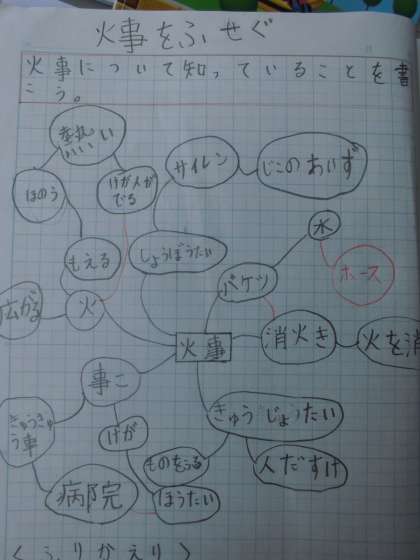 火事をふせぐ
火事について知っていることを書
こう。
熱い
サイレン
じこのあいず
ほのう
けが人が
でる
水
もえる
しょうぼうたい
バケツ
ホース
広がる
火
火事
消火き
火を消
事こ
きゅうじょたい
きゅうきゅ
う車
けが
ものをふる
人だすけ
病院
ほうたい
＜ふりかえり＞